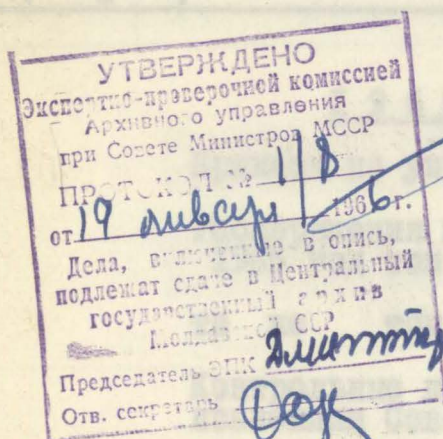 УТВЕРЖДЕНО
Экспертно-проверочной комиссией
Архивного управления
при Совете Министров МССР
ПРОТОКОЛ № 1/8
от 19 января 1966 г.
Дела, включенные в опись,
подлежат сдаче в Центральный
государственный архив
Молдавской ССР
Председатель ЭПК
Отв. секретарь